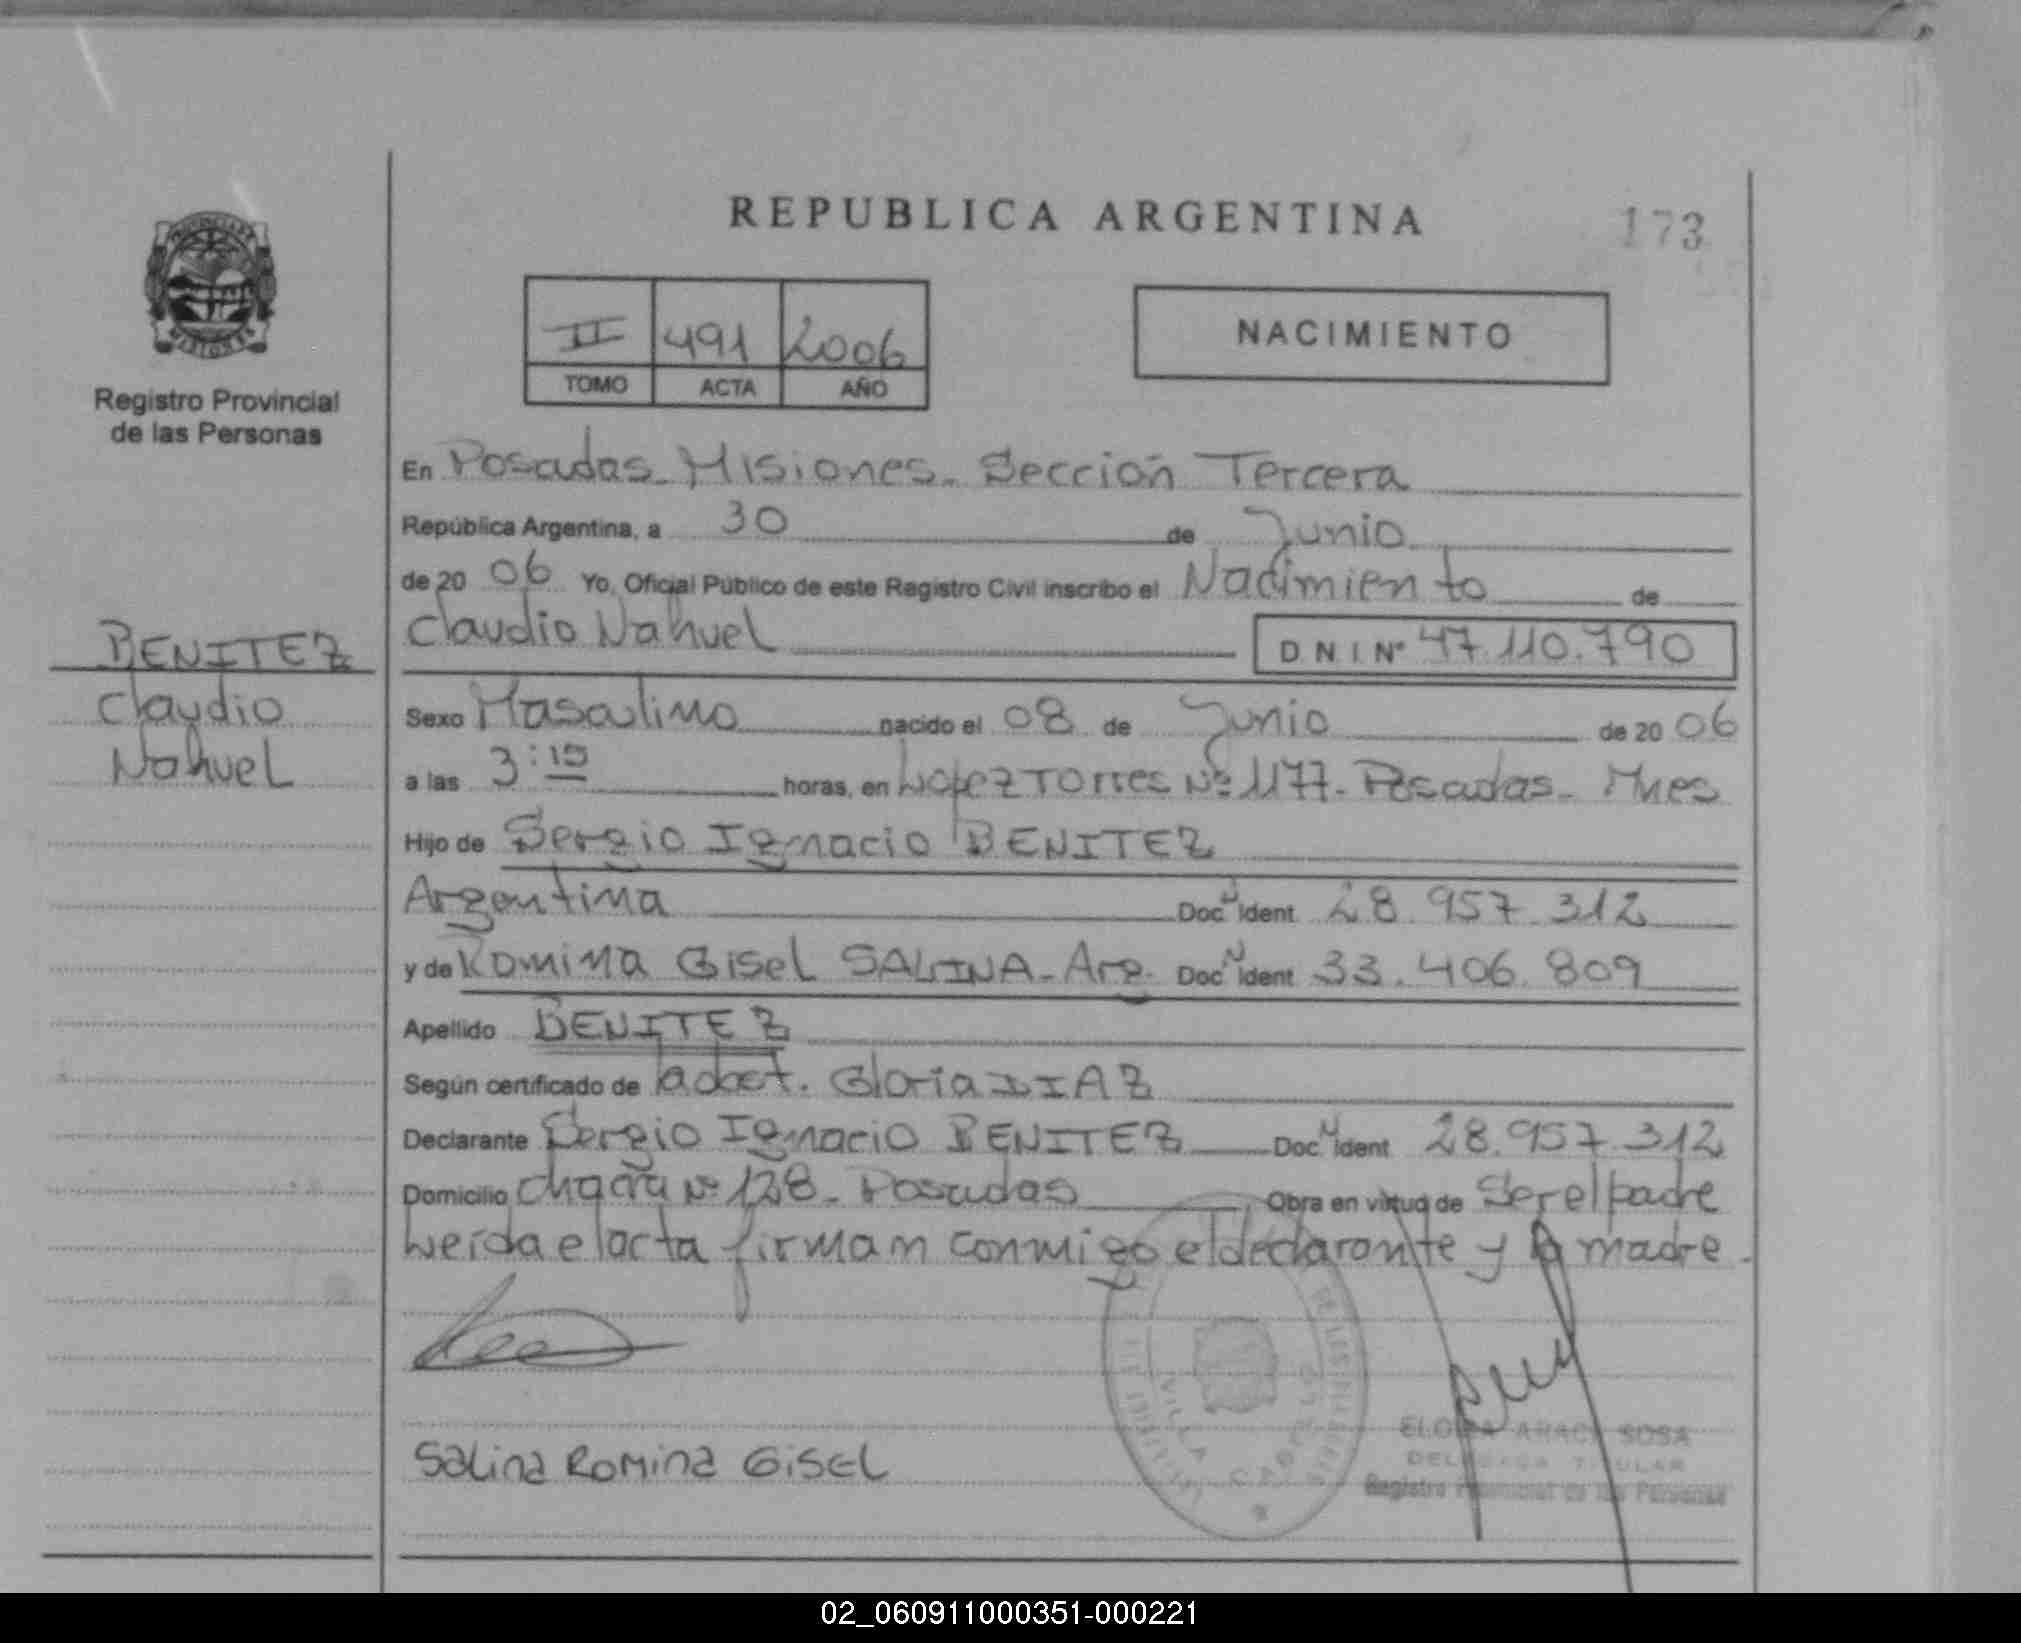 REPUBLICA ARGENTINA
173
PROVINCIA DE
MISIONES
Registro Provincial
de las Personas
II 491 2006
TOMO ACTA AÑO
NACIMIENTO
BENITEZ
Claudio
Nahuel
En Posadas - Misiones - Sección Tercera
República Argentina, a 30 de Junio
de 20 06 Yo, Oficial Público de este Registro Civil inscribo el Nacimiento de
Claudio Nahuel D N I Nº 47.110.790
Sexo Masculino nacido el 08 de Junio de 20 06
a las 3:15 horas, en Lopez Torres Nº 1177 - Posadas - Mnes
Hijo de Sergio Ignacio BENITEZ
Argentina Doc. Ident 28.957.312
y de Romina Gisel SALINA - Arg. Doc. Ident 33.406.809
Apellido BENITEZ
Según certificado de la doct. Gloria DIAZ
Declarante Sergio Ignacio BENITEZ Doc. Ident 28.957.312
Domicilio chacra Nº 128 - Posadas Obra en virtud de Ser el padre
Leída el acta firman conmigo el declarante y la madre.
Salina Romina Gisel
VILLA CABELLO
SOSA
DELEGADA TITULAR
Registro Provincial de las Personas
02_060911000351-000221